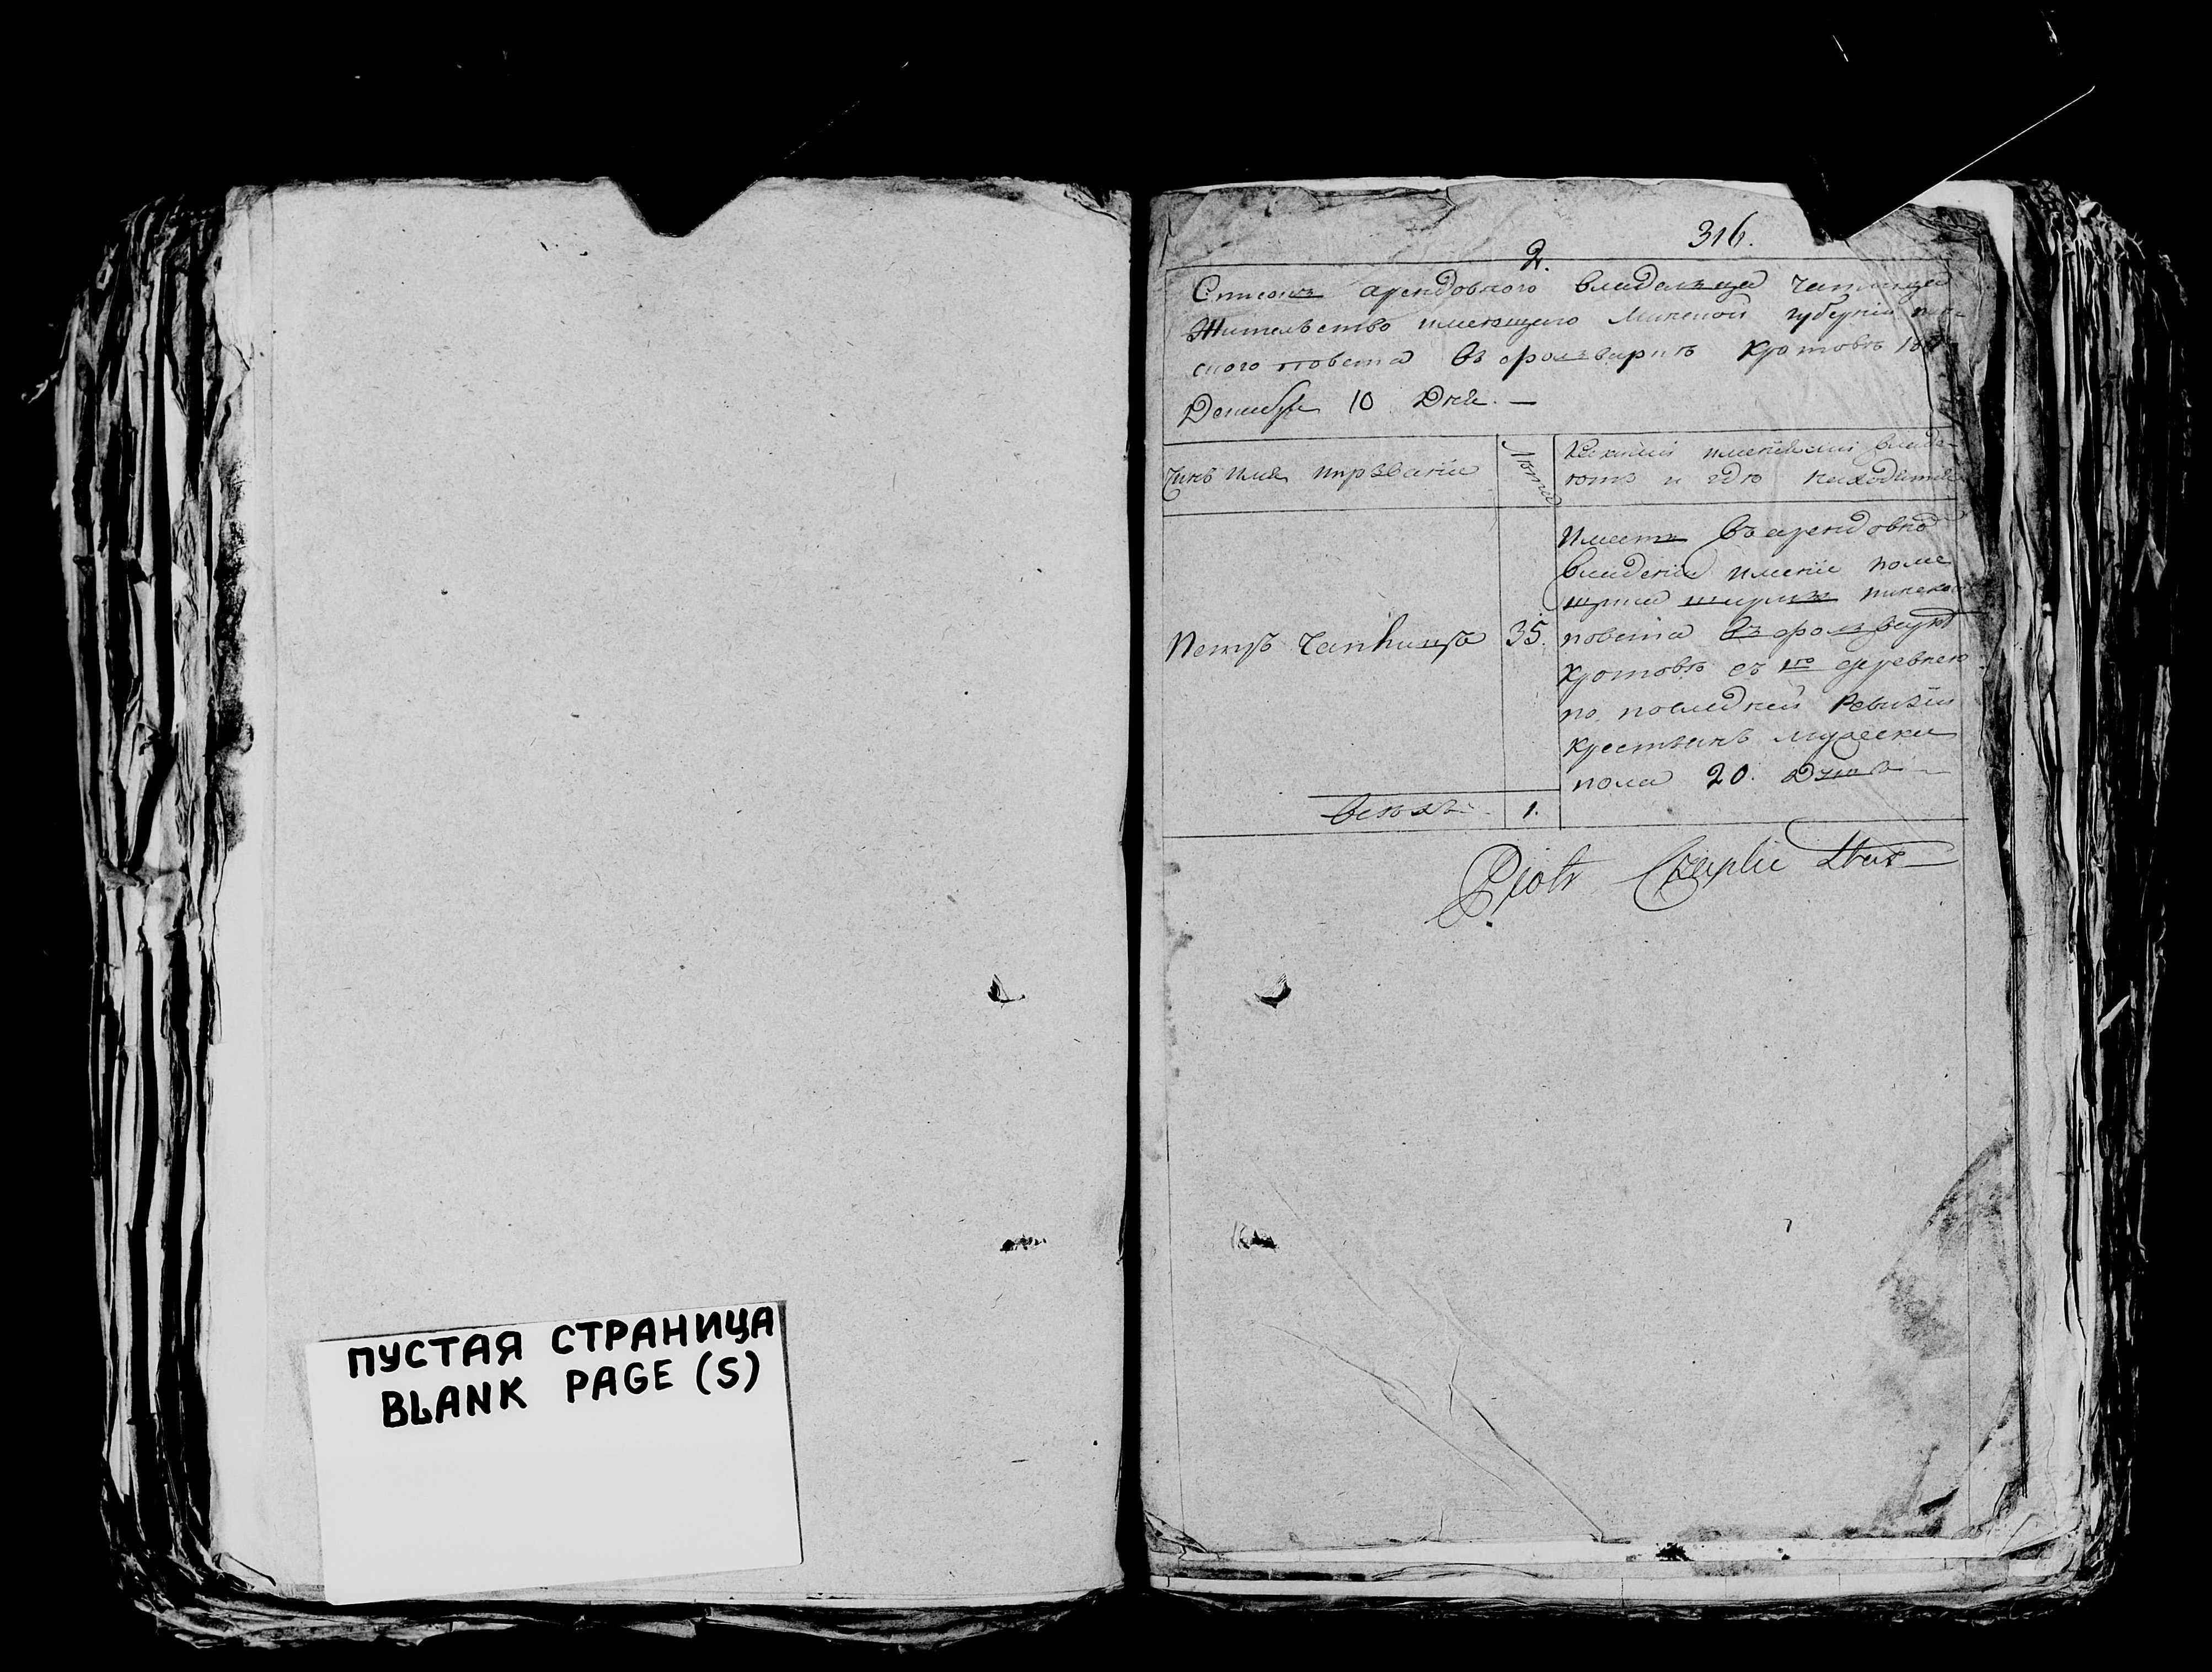 ПУСТАЯ СТРАНИЦА
BLANK PAGE (S)
316.
2.
Списокъ арендовного владельца
Жительство имеющего Минской губерніи пин-
ского повета въ фольварке Кротове
Декабря 10 Дня. —
Чинъ имя прозваніе
Лета
имениями владе-
ютъ и где находятся
Петръ
35.
Имеетъ въ арендовно
владении имение поме
щика пинского
повета въ фольварке
Кротове съ 1ю деревнею
по последней Ревизіи
крестьянъ мужеска
пола 20. Душъ —
Всехъ
1.
Piotr